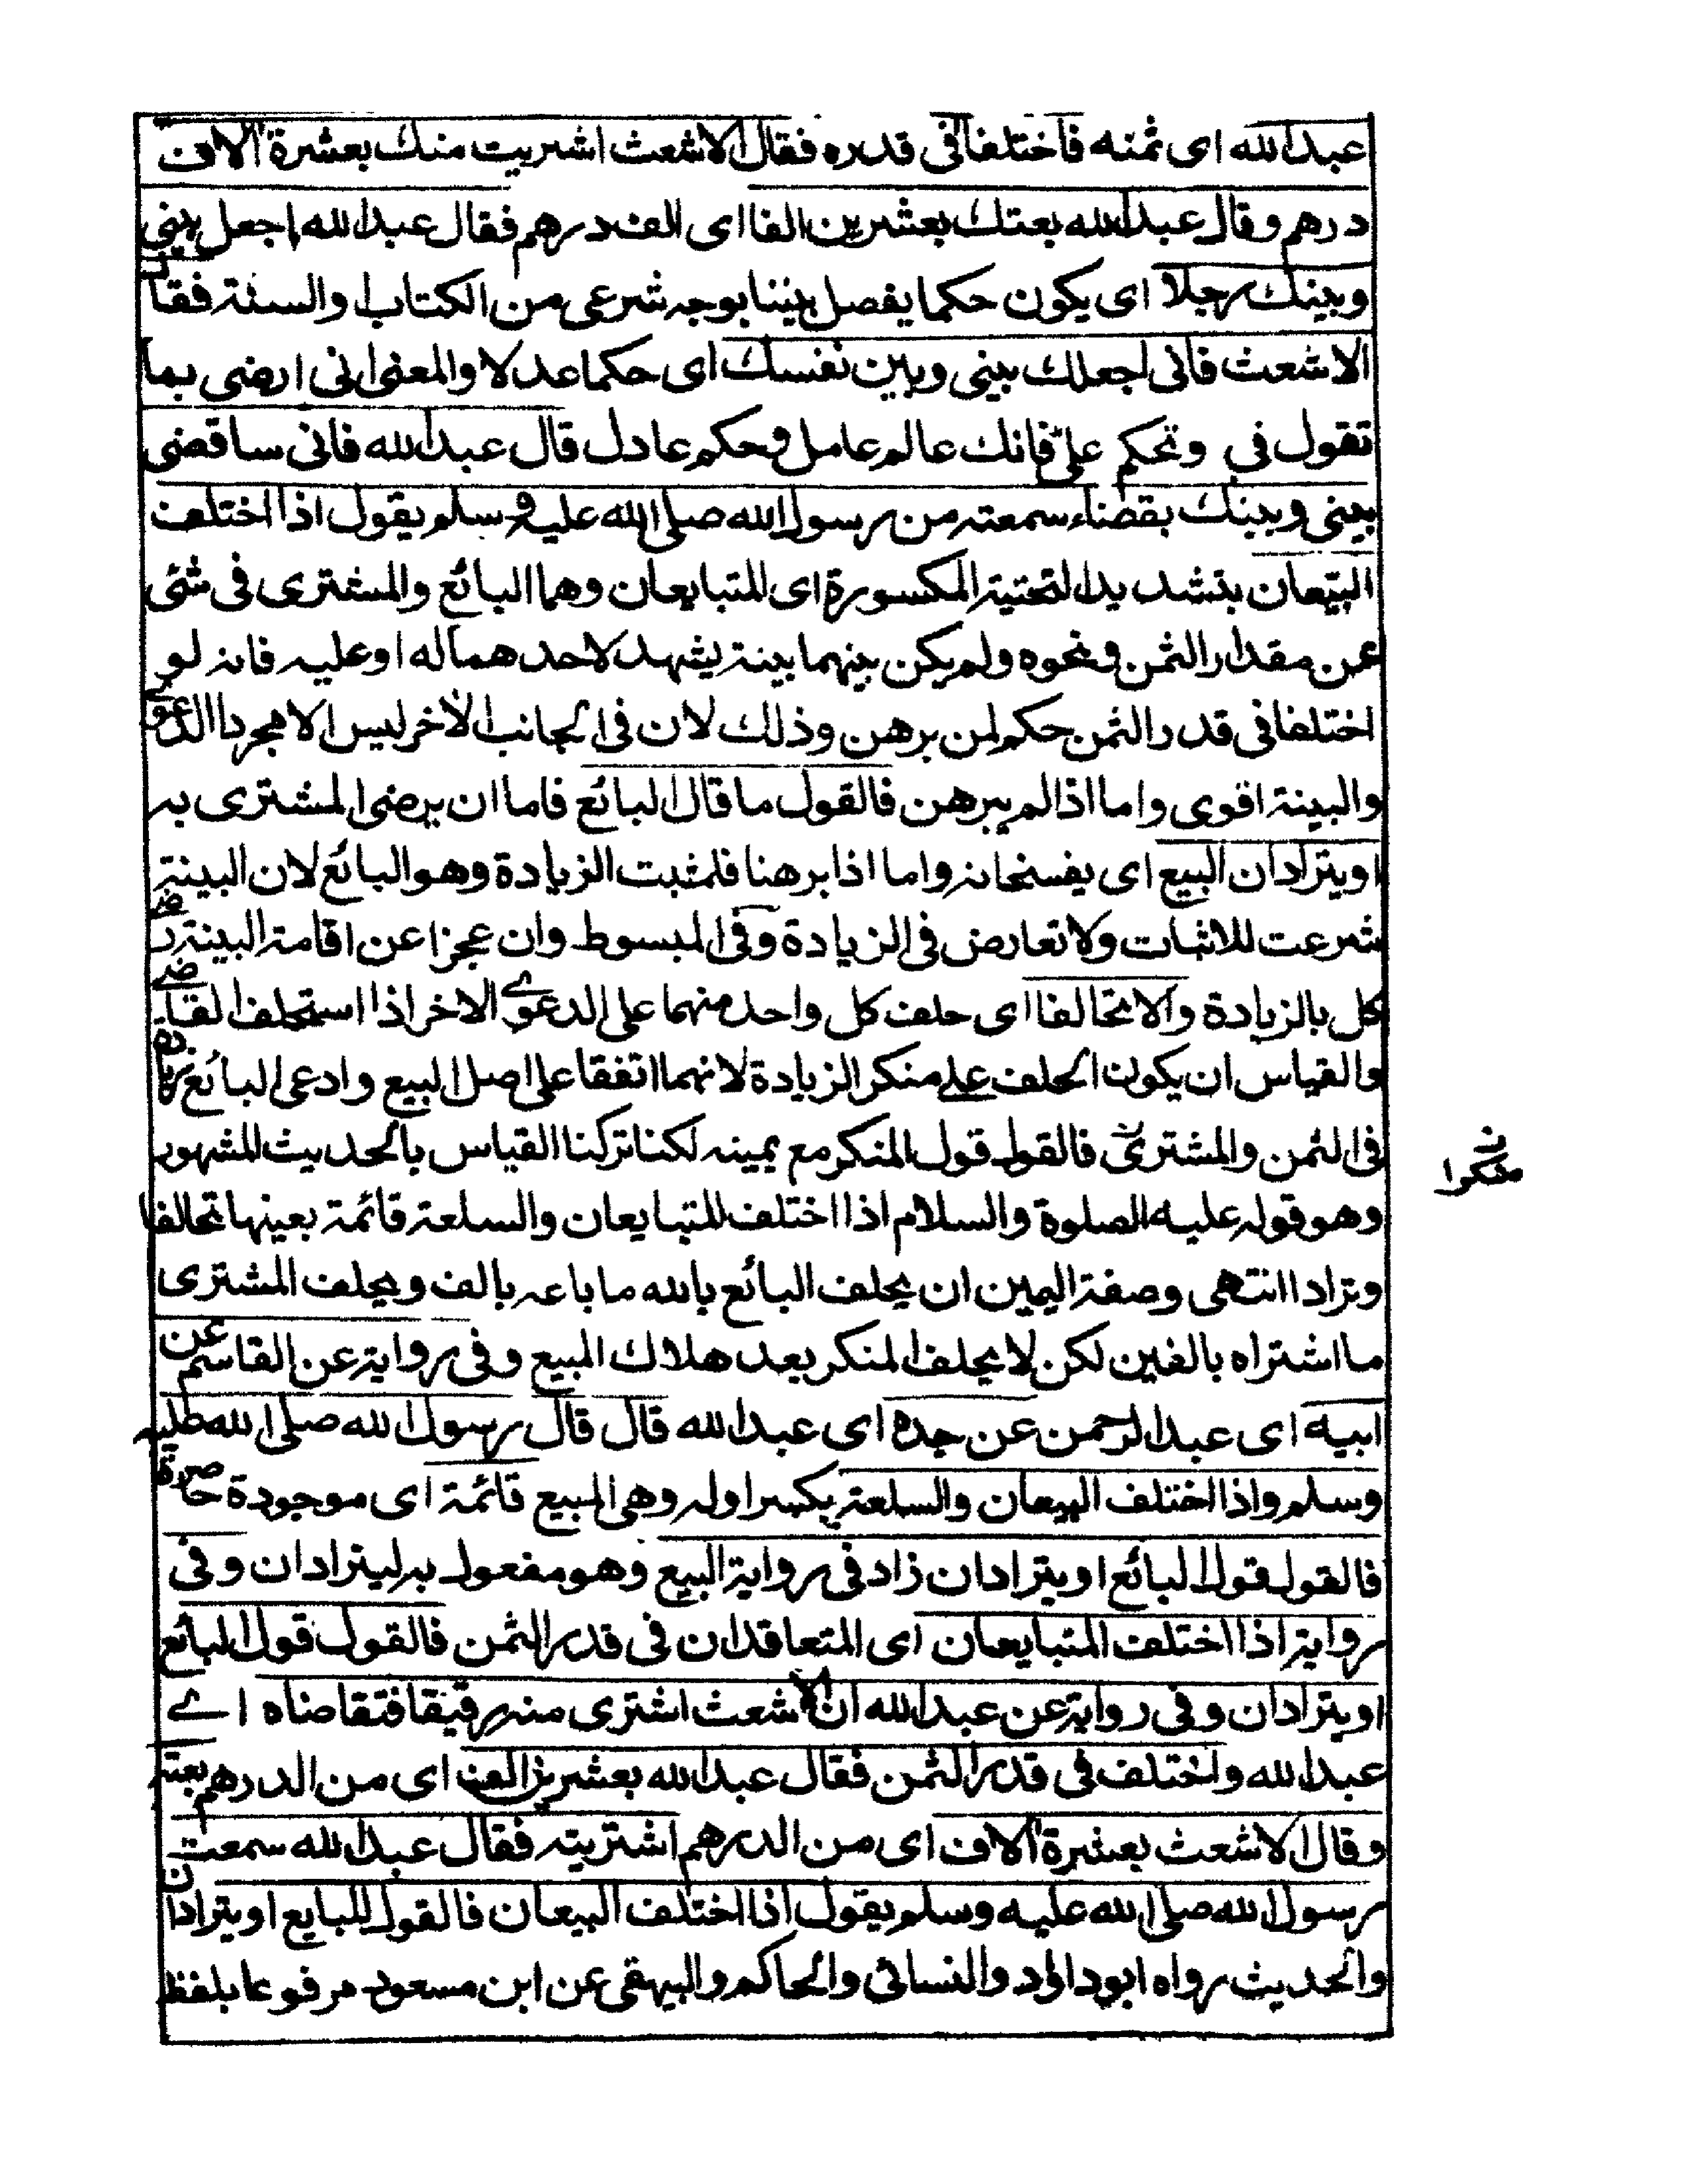 عبدالله اى ثمنه فاختلفا فى قدره فقال الاشعث اشتريت منك بعشرة آلاف
درهم وقال عبدالله بعتك بعشرين الفا اى الف درهم فقال عبدالله اجعل بينى
وبينك رجلا اى يكون حكما يفصل بيننا بوجه شرعى من الكتاب والسنة فقال
الاشعث فانى اجعلك بينى وبين نفسك اى حكما عدلا والمعنى انى ارضى بما
تقول فى وتحكم علىّ فانك عالم عامل وحكم عادل قال عبدالله فانى ساقضى
بينى وبينك بقضاء سمعته من رسول الله صلى الله عليه وسلم يقول اذا اختلف
البيّعان بتشديد التحتية المكسورة اى المتبايعان وهما البائع والمشترى فى شئى
عن مقدار الثمن ونحوه ولم يكن بينهما بينة يشهد لاحدهما له او عليه فانه لو
اختلفا فى قدر الثمن حكم لمن برهن وذلك لان فى الجانب الآخر ليس الا مجرد الدعوے
والبينة اقوى واما اذا لم يبرهن فالقول ما قال البائع فاما ان يرضى المشترى به
او يترادان البيع اى يفسخانه واما اذا برهنا فلمثبت الزيادة وهو البائع لان البينة
شرعت للاثبات ولا تعارض فى الزيادة وفى المبسوط وان عجزا عن اقامة البينة رضے
كل بالزيادة والا تحالفا اى حلف كل واحد منهما على الدعوے الاخر اذا استحلف القاضے
والقياس ان يكون الحلف علے منكر الزيادة لانهما اتفقا على اصل البيع وادعى البائع زيادة
فى الثمن والمشترى فالقول قول المنكر مع يمينه لكنا تركنا القياس بالحديث المشهور
منكرا
وهو قوله عليه الصلوة والسلام اذا اختلف المتبايعان والسلعة قائمة بعينها تحالفا
وترادا انتهى وصفة اليمين ان يحلف البائع بالله ما باعه بالف ويحلف المشترى
ما اشتراه بالفين لكن لا يحلف المنكر بعد هلاك المبيع وفى رواية عن القاسم عن
ابيه اى عبد الرحمن عن جده اى عبدالله قال قال رسول الله صلى الله عليه
وسلم واذا اختلف البيعان والسلعة بكسر اوله وهى المبيع قائمة اى موجودة حاضرة
فالقول قول البائع او يترادان زاد فى رواية البيع وهو مفعول به ليترادان وفى
رواية اذا اختلف المتبايعان اى المتعاقدان فى قدر الثمن فالقول قول البائع
او يترادان وفى رواية عن عبدالله ان الاشعث اشترى منه رقيقا فتقاضاه اے
عبدالله واختلف فى قدر الثمن فقال عبدالله بعشرين الف اى من الدرهم بعته
وقال الاشعث بعشرة آلاف اى من الدرهم اشتريته فقال عبدالله سمعت
رسول الله صلى الله عليه وسلم يقول اذا اختلف البيعان فالقول للبايع او يترادان
والحديث رواه ابوداؤد والنسائى والحاكم والبيهقى عن ابن مسعود مرفوعا بلفظ